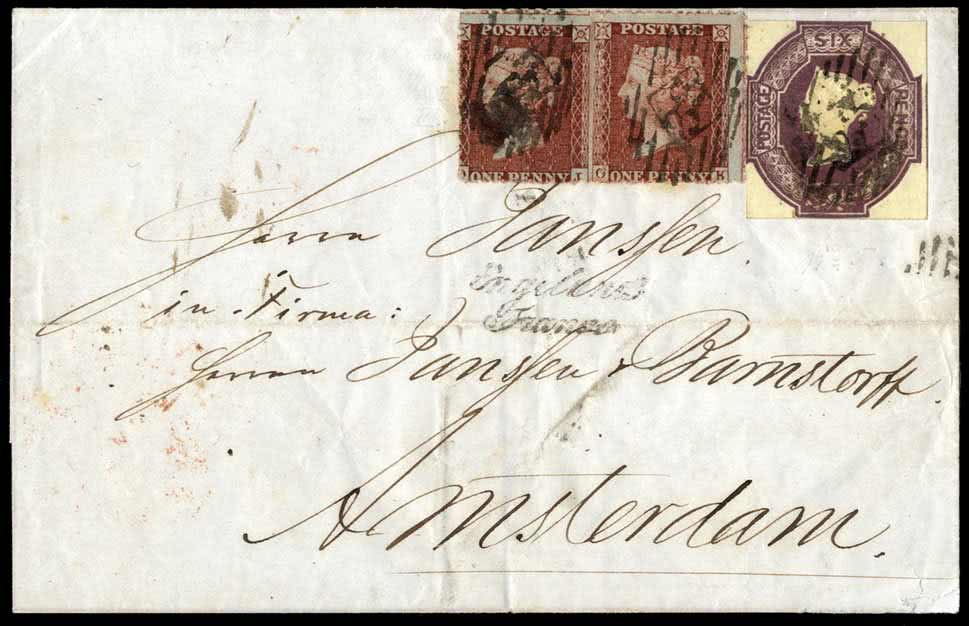 POSTAGE POSTAGE
ONE PENNY J
C ONE PENNY K
SIX
POSTAGE PENCE
Herrn Janssen.
Engeland
Franco
in Firma:
Herren Janssen & Bamstorff.
Amsterdam.